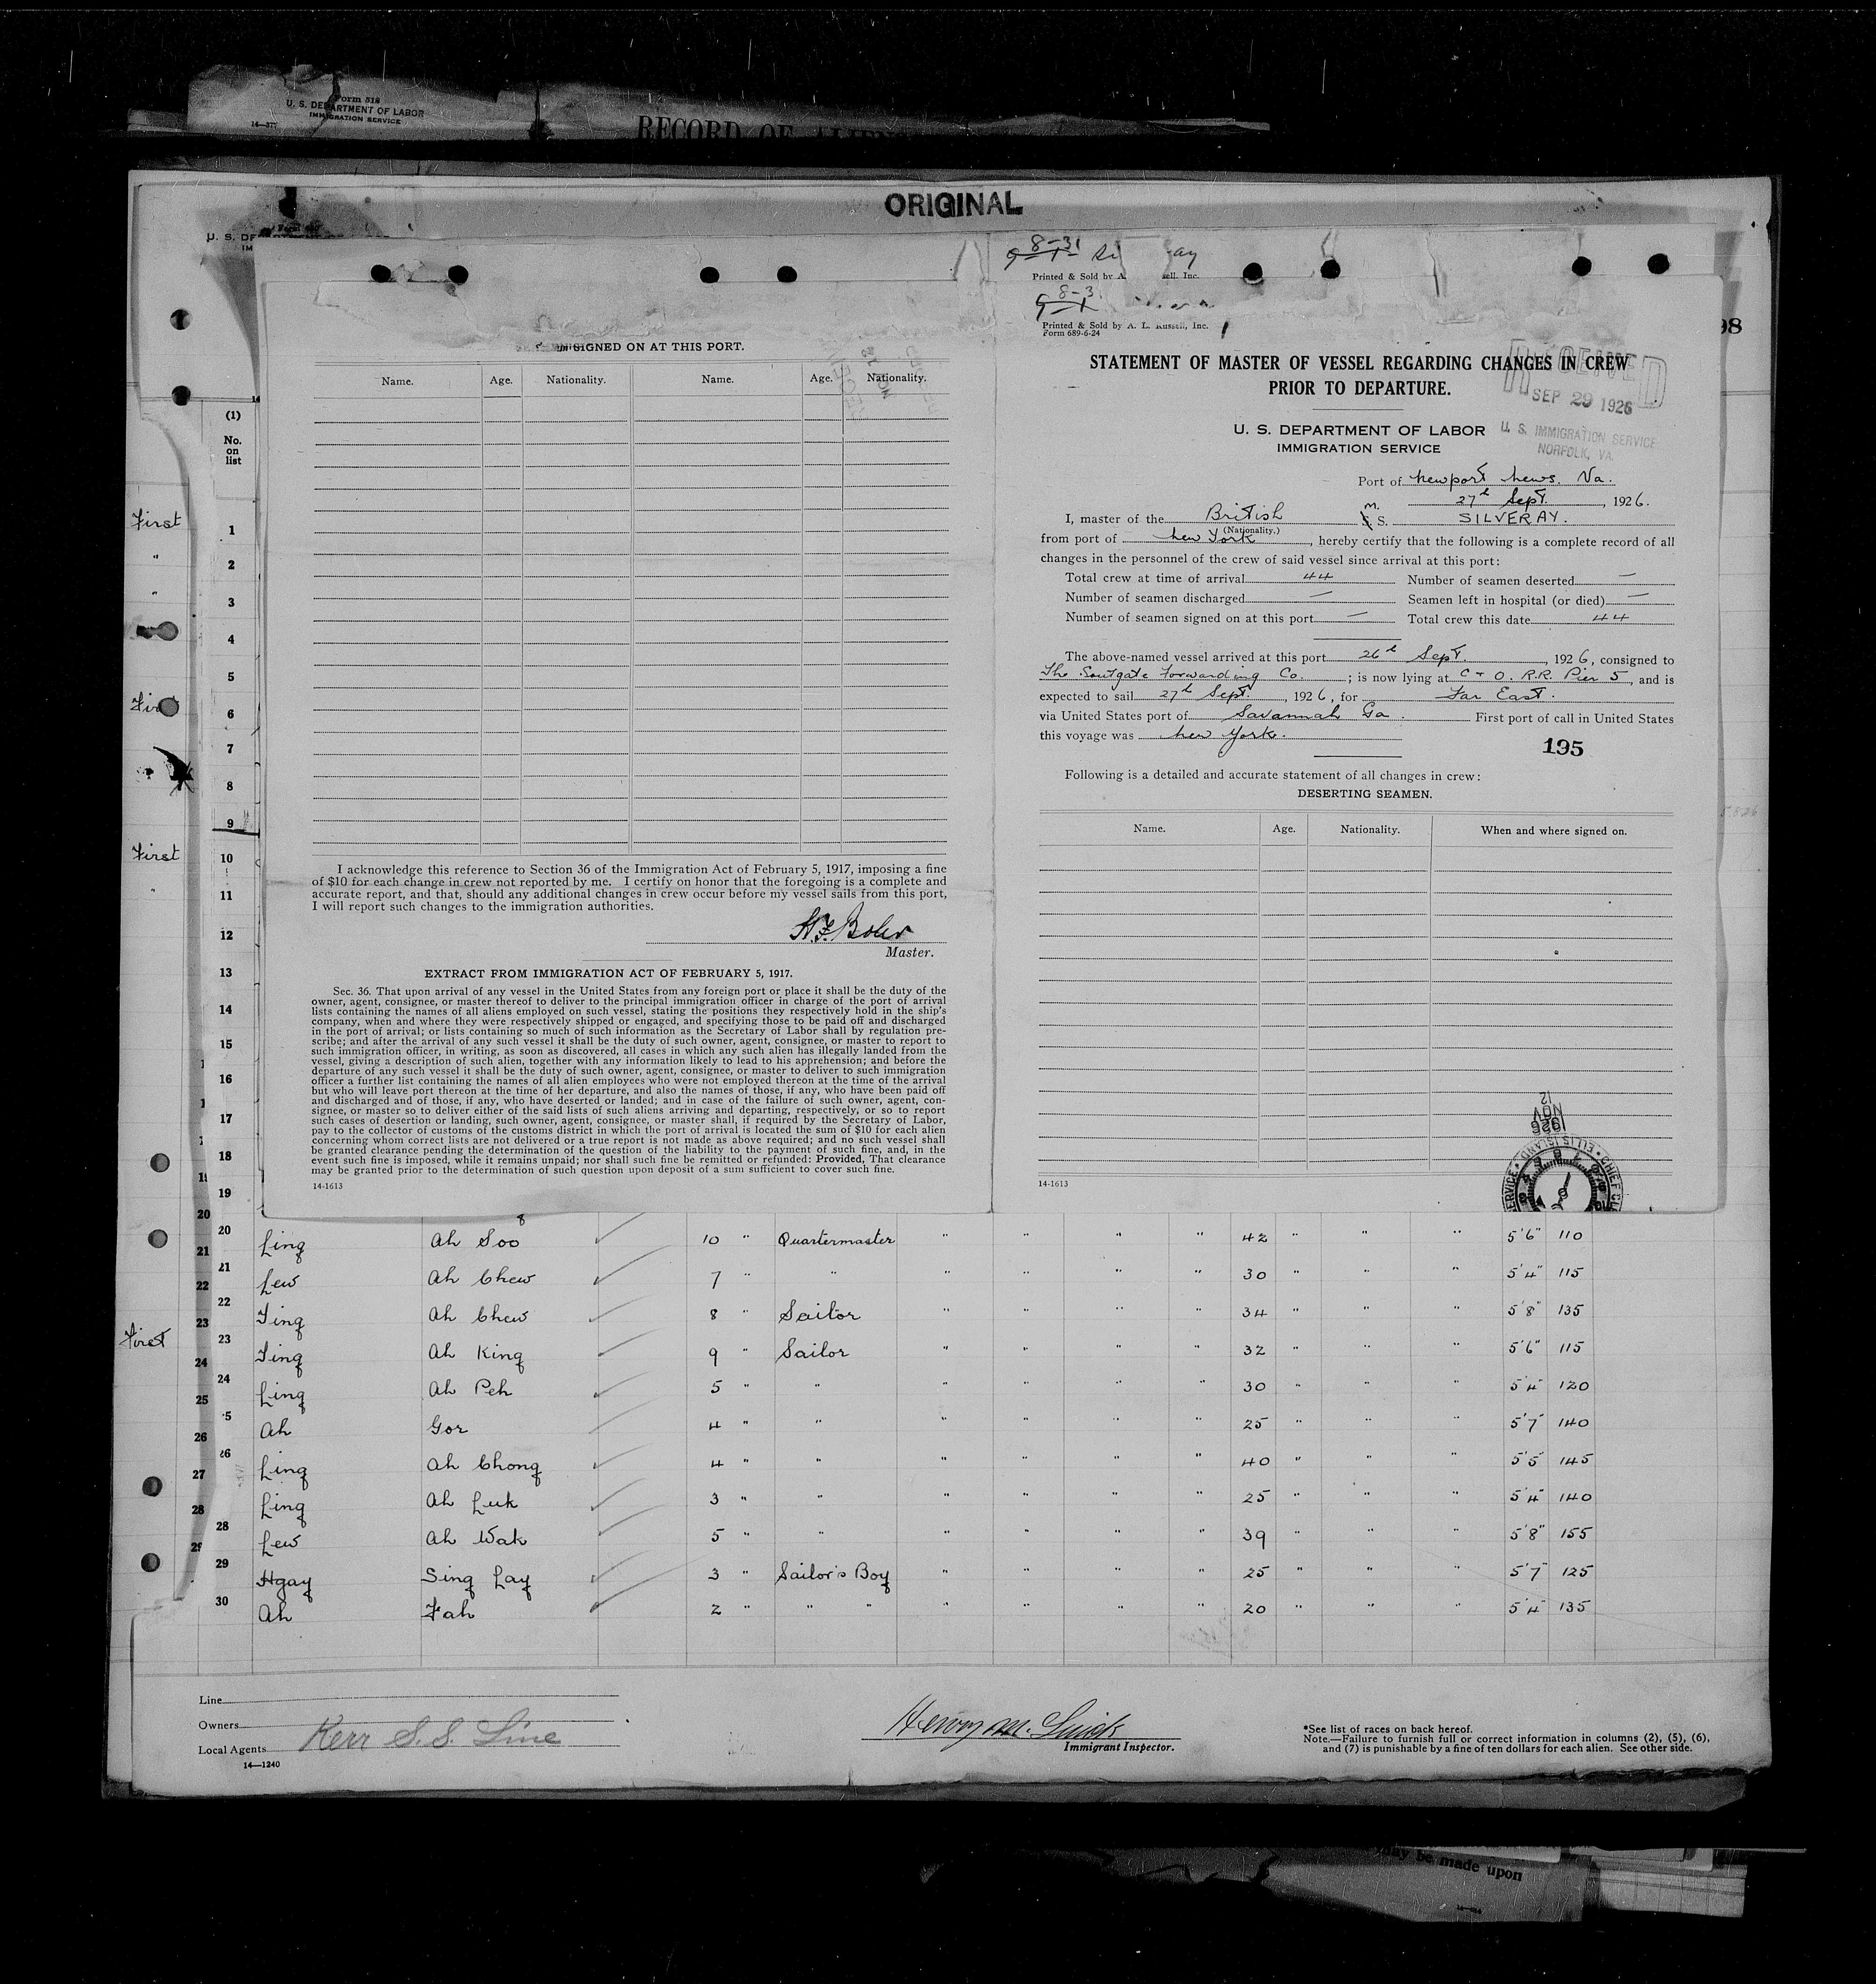 Form 512
U. S. DEPARTMENT OF LABOR
IMMIGRATION SERVICE
RECORD OF ALIENS
ORIGINAL
SIGNED ON AT THIS PORT.
Name. Age. Nationality. Name. Age. Nationality.
I acknowledge this reference to Section 36 of the Immigration Act of February 5, 1917, imposing a fine
of $10 for each change in crew not reported by me. I certify on honor that the foregoing is a complete and
accurate report, and that, should any additional changes in crew occur before my vessel sails from this port,
I will report such changes to the immigration authorities.
Master.
EXTRACT FROM IMMIGRATION ACT OF FEBRUARY 5, 1917.
Sec. 36. That upon arrival of any vessel in the United States from any foreign port or place it shall be the duty of the
owner, agent, consignee, or master thereof to deliver to the principal immigration officer in charge of the port of arrival
lists containing the names of all aliens employed on such vessel, stating the positions they respectively hold in the ship's
company, when and where they were respectively shipped or engaged, and specifying those to be paid off and discharged
in the port of arrival; or lists containing so much of such information as the Secretary of Labor shall by regulation pre-
scribe; and after the arrival of any such vessel it shall be the duty of such owner, agent, consignee, or master to report to
such immigration officer, in writing, as soon as discovered, all cases in which any such alien has illegally landed from the
vessel, giving a description of such alien, together with any information likely to lead to his apprehension; and before the
departure of any such vessel it shall be the duty of such owner, agent, consignee, or master to deliver to such immigration
officer a further list containing the names of all alien employees who were not employed thereon at the time of the arrival
but who will leave port thereon at the time of her departure, and also the names of those, if any, who have been paid off
and discharged and of those, if any, who have deserted or landed; and in case of the failure of such owner, agent, con-
signee, or master so to deliver either of the said lists of such aliens arriving and departing, respectively, or so to report
such cases of desertion or landing, such owner, agent, consignee, or master shall, if required by the Secretary of Labor,
pay to the collector of customs of the customs district in which the port of arrival is located the sum of $10 for each alien
concerning whom correct lists are not delivered or a true report is not made as above required; and no such vessel shall
be granted clearance pending the determination of the question of the liability to the payment of such fine, and, in the
event such fine is imposed, while it remains unpaid; nor shall such fine be remitted or refunded: Provided, That clearance
may be granted prior to the determination of such question upon deposit of a sum sufficient to cover such fine.
14-1613
8-31
Printed & Sold by A.
Printed & Sold by A. L. Russell, Inc.
Form 689-6-24
STATEMENT OF MASTER OF VESSEL REGARDING CHANGES IN CREW
PRIOR TO DEPARTURE.
RECEIVED
SEP 29 1926
U. S. IMMIGRATION SERVICE
NORFOLK, VA.
U. S. DEPARTMENT OF LABOR
IMMIGRATION SERVICE
Port of Newport News. Va.
27th Sept. , 1926.
I, master of the British M. S. SILVERAY.
(Nationality.)
from port of New York , hereby certify that the following is a complete record of all
changes in the personnel of the crew of said vessel since arrival at this port:
Total crew at time of arrival 44 Number of seamen deserted —
Number of seamen discharged — Seamen left in hospital (or died) —
Number of seamen signed on at this port — Total crew this date 44
The above-named vessel arrived at this port 26th Sept. , 1926, consigned to
The Southgate Forwarding Co. ; is now lying at C + O. R.R. Pier 5, and is
expected to sail 27th Sept. , 1926, for Far East.
via United States port of Savannah Ga. First port of call in United States
this voyage was New York.
195
Following is a detailed and accurate statement of all changes in crew:
DESERTING SEAMEN.
Name. Age. Nationality. When and where signed on.
14-1613
1926
NOV
12
98
(1)
No.
on
list
First 1
" 2
" 3
4
5
First 6
7
8
9
First 10
" 11
12
13
14
15
16
17
18
19
20 Ling Ah Soo 10 " Quartermaster " " " " 42 " " " 5'6" 110
21 Lew Ah Chew 7 " " " " " " 30 " " " 5'4" 115
22 Ting Ah Chew 8 " Sailor " " " " 34 " " " 5'8" 135
First 23 Ting Ah King 9 " Sailor " " " " 32 " " " 5'6" 115
24 Ling Ah Peh 5 " " " " " " 30 " " " 5'4" 120
25 Ah Gor 4 " " " " " " 25 " " " 5'7" 140
26 Ling Ah Chong 4 " " " " " " 40 " " " 5'5" 145
27 Ling Ah Luk 3 " " " " " " 25 " " " 5'4" 140
28 Lew Ah Wak 5 " " " " " " 39 " " " 5'8" 155
29 Hgay Sing Lay 3 " Sailor's Boy " " " " 25 " " " 5'7" 125
30 Ah Fah 2 " " " " " " " 20 " " " 5'4" 135
Line
Owners
Local Agents Kerr S.S. Line
14—1240
Immigrant Inspector.
*See list of races on back hereof.
Note.—Failure to furnish full or correct information in columns (2), (5), (6),
and (7) is punishable by a fine of ten dollars for each alien. See other side.
may be made upon